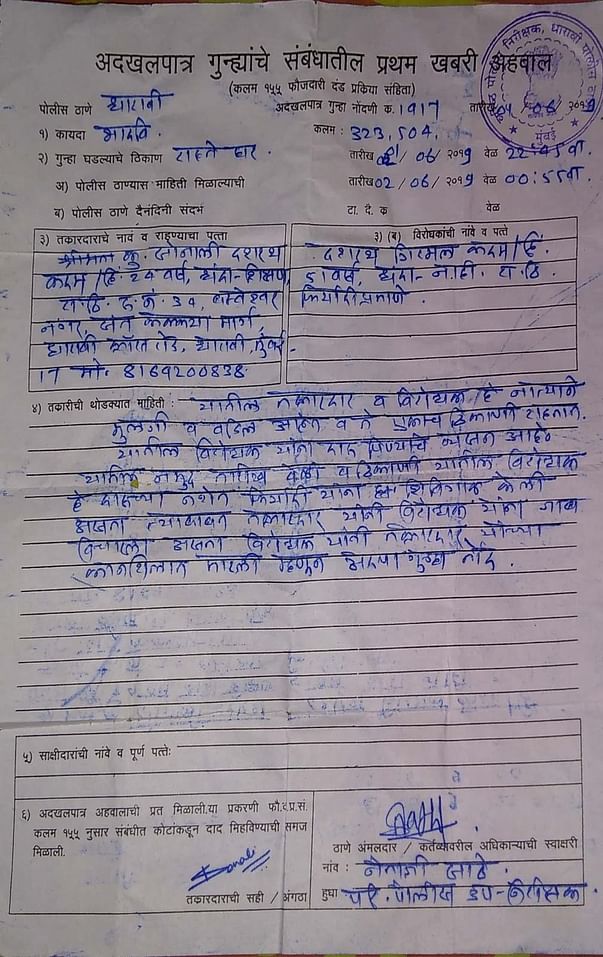 अदखलपात्र गुन्ह्यांचे संबंधातील प्रथम खबरी अहवाल
(कलम १५५ फौजदारी दंड प्रक्रिया संहिता)
पोलीस ठाणे धारावी अदखलपात्र गुन्हा नोंदणी क. 1917 तारीख 02/06/२०१९
१) कायदा भादवि. कलम : 323, 504.
२) गुन्हा घडल्याचे ठिकाण राहते घर. तारीख 01/06/२०१9 वेळ 22:45 वा.
अ) पोलीस ठाण्यास माहिती मिळाल्याची तारीख 02/06/२०१9 वेळ 00:55 वा.
ब) पोलीस ठाणे दैनंदिनी संदभ टा. दै. क्र वेळ
३) तकारदाराचे नाव व राहण्याचा पत्ता
कु. सोनाली दशरथ
कदम / हिं. 24 वर्ष, धंदा - शिक्षण,
रा. ठि. रु. नं. 34,
नगर, संत मार्ग,
धारावी क्रॉस रोड, धारावी, मुंबई -
17 मो. 8169200838
३) (ब) विरोधकांची नांवे व पत्ते
दशरथ कदम / हिं.
51 वर्ष, धंदा - नाही. रा. ठि.
फिर्यादीप्रमाणे.
४) तकारीची थोडक्यात माहिती : यातील तक्रारदार व विरोधक हे नात्याने
मुलगी व वडिल आहेत व ते एकाच ठिकाणी राहतात.
यातील विरोधक यांना दारू पिण्याचे व्यसन आहे.
यातील नमुद तारीख वेळी व ठिकाणी यातील विरोधक
हे दारूच्या नशेत फिर्यादी यांना शिवीगाळ केली
असता त्याबाबत तक्रारदार यांनी विरोधक यांना जाब
विचारला असता विरोधक यांनी तक्रारदार यांच्या
कानशिलात मारली म्हणून अदखलपात्र गुन्हा नोंद.
५) साक्षीदारांची नांवे व पूर्ण पत्ते:
६) अदखलपात्र अहवालाची प्रत मिळाली.या प्रकरणी फौ.द.प्र.सं.
कलम १५५ नुसार संबंधीत कोटांकडून दाद मिहविण्याची समज
मिळाली.
तकारदाराची सही / अंगठा
ठाणे अंमलदार / कर्तव्यावरील अधिकाऱ्याची स्वाक्षरी
नांव :
हुद्या पोलीस उप-निरीक्षक.
मुंबई